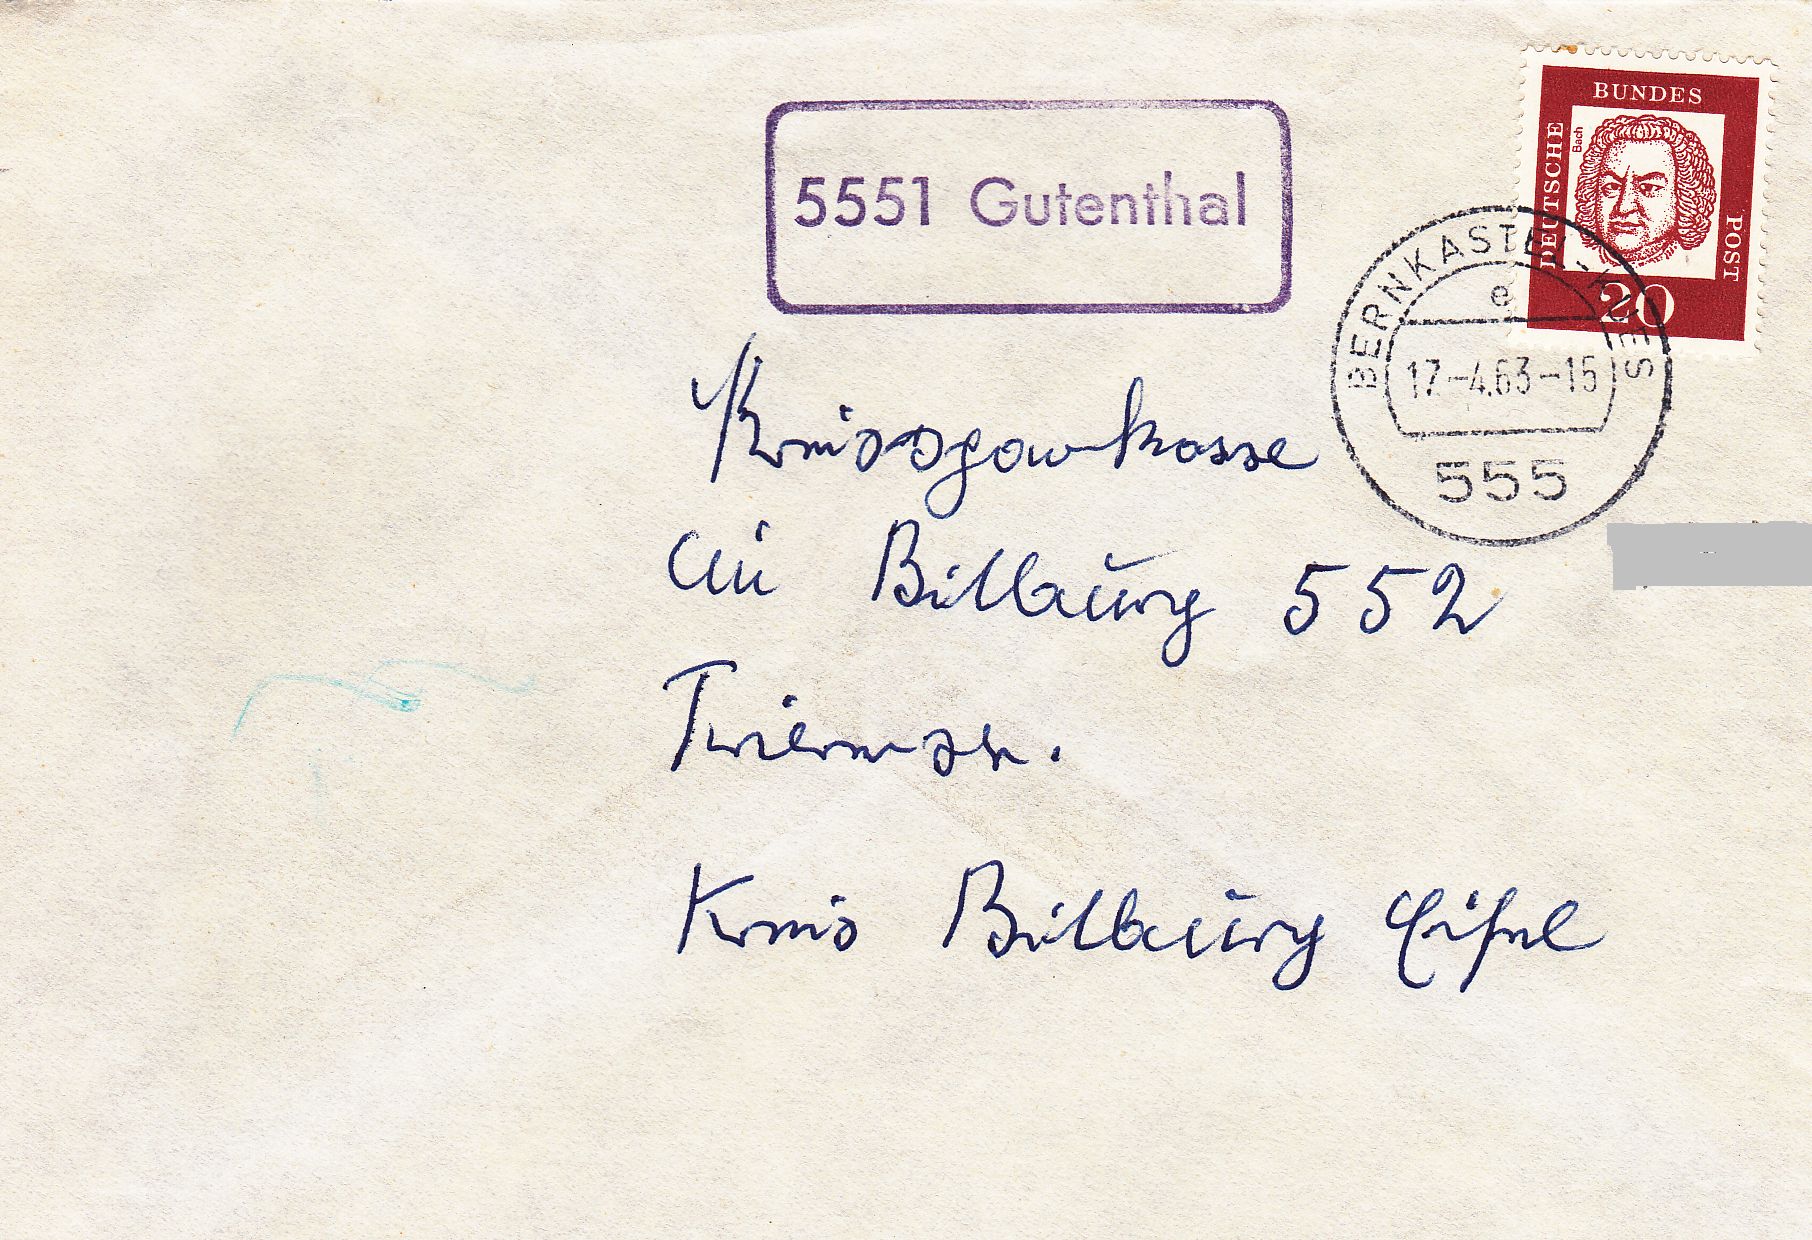 5551 Gutenthal
DEUTSCHE
BUNDES
POST
Bach
20
BERNKASTEL-KUES
e
17.-4.63-15
555
Kreissparkasse
in Bitburg 552
Kreis Bitburg Eifel